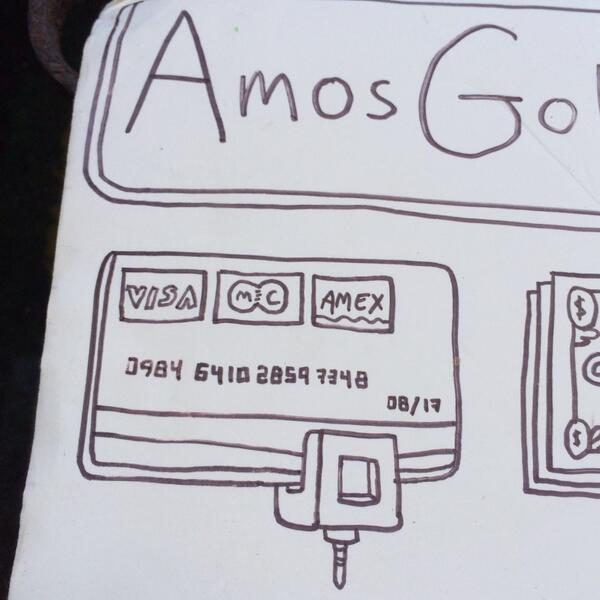 Amos Go
VISA MC AMEX
0984 6410 2859 7348
08/17
$
$